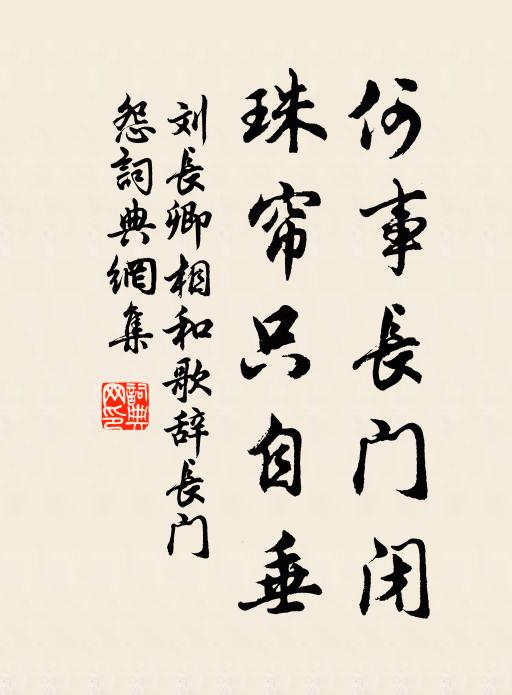 何事長门闭
珠帘只自垂
刘長卿相和歌辞長门
怨詞典網集
詞典网印